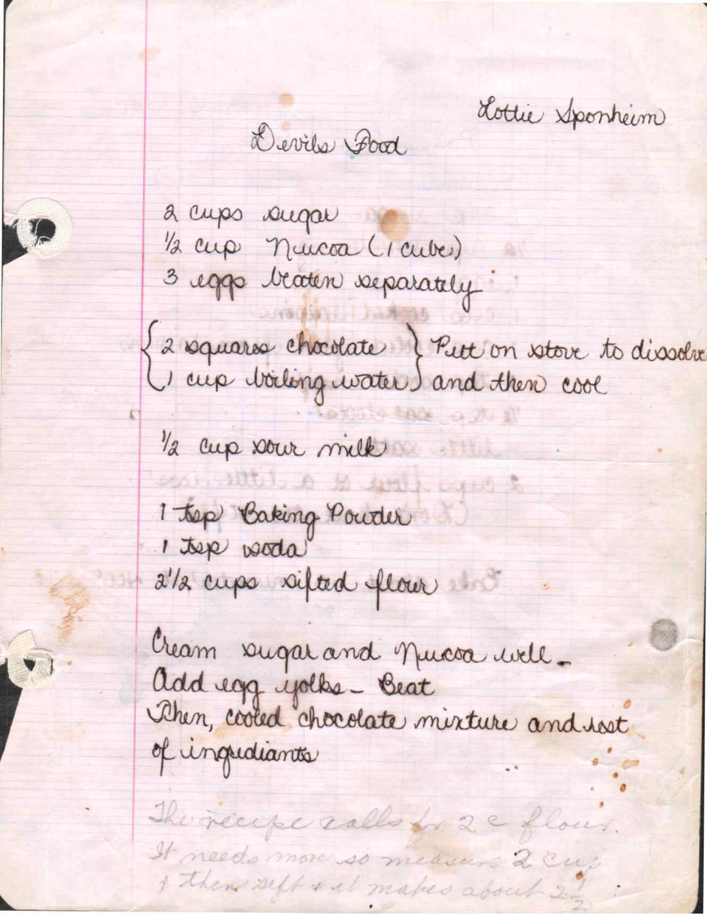 Lottie Sponheim
Devils Food
2 cups sugar
1/2 cup Nucoa (1 cube)
3 eggs beaten separately
2 squares chocolate } Put on stove to dissolve
1 cup boiling water } and then cool
1/2 cup sour milk
1 tsp Baking Powder
1 tsp soda
2 1/2 cups sifted flour
Cream sugar and Nucoa well -
Add egg yolks - Beat
Then, cooled chocolate mixture and rest
of ingrediants
The recipe calls for 2 c flour.
It needs more so measure 2 cup
& then sift & it makes about 2 1/2